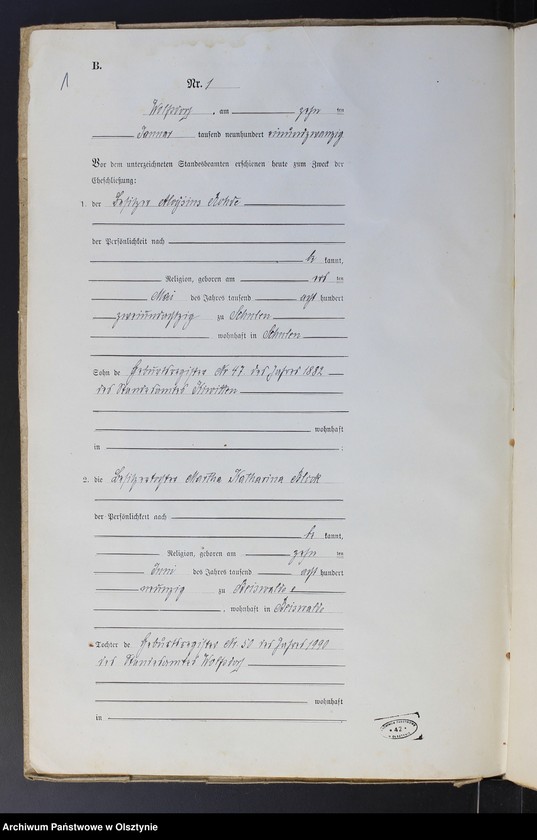 B.
1
Nr. 1
Wolfsdorf, am zehn ten
Januar tausend neunhundert einundzwanzig
Vor dem unterzeichneten Standesbeamten erschienen heute zum Zweck der
Eheschließung:
1. der Besitzer Aloysius
der Persönlichkeit nach
be kannt,
Religion, geboren am ten
Mai des Jahres tausend acht hundert
zweiundachtzig zu Schulen
wohnhaft in Schulen
Sohn de Geburtsregister Nr 47 des Jahres 1882
des Standesamtes
wohnhaft
in .
2. die Besitzertochter Martha Katharina
der Persönlichkeit nach
be kannt,
Religion, geboren am zehn ten
Juni des Jahres tausend acht hundert
neunzig zu
, wohnhaft in
Tochter de Geburtsregister Nr. 50 des Jahres 1890
des Standesamtes Wolfsdorf
wohnhaft
in
* 42 *
Archiwum Państwowe w Olsztynie